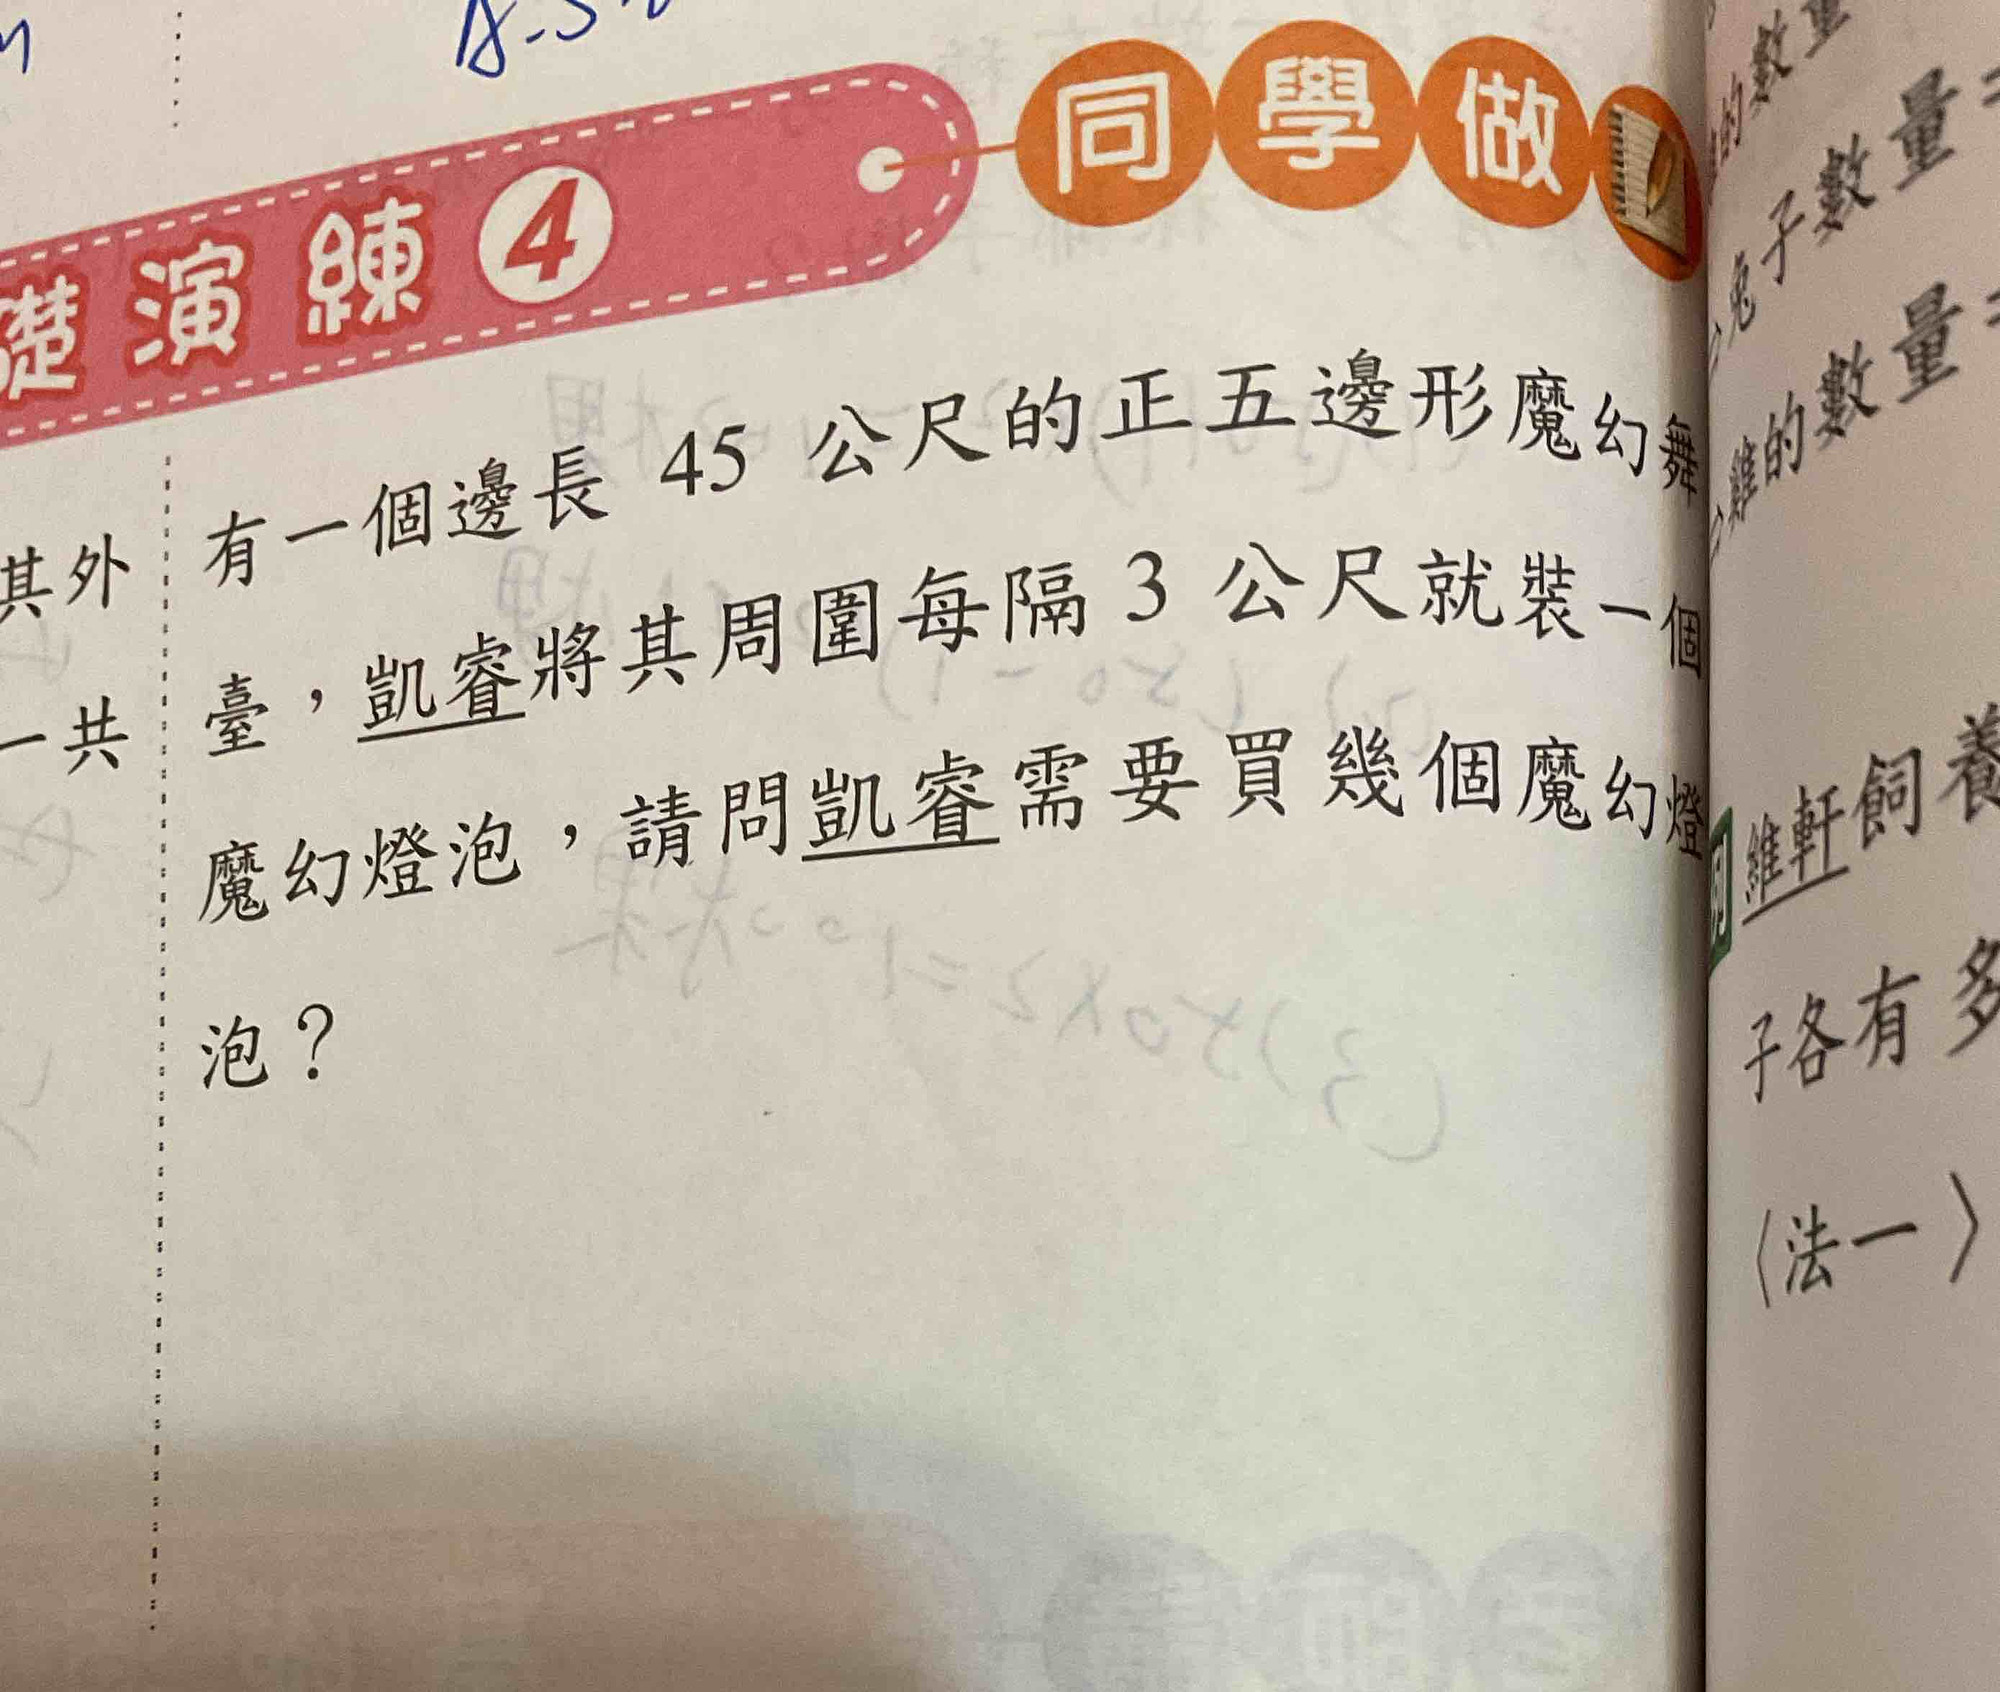 礎演練4 同學做
有一個邊長 45 公尺的正五邊形魔幻舞
臺，凱睿將其周圍每隔 3 公尺就裝一個
魔幻燈泡，請問凱睿需要買幾個魔幻燈
泡？
其外
一共
的數量
兔子數量=
雞的數量=
例 維軒飼養
子各有多
〈法一〉